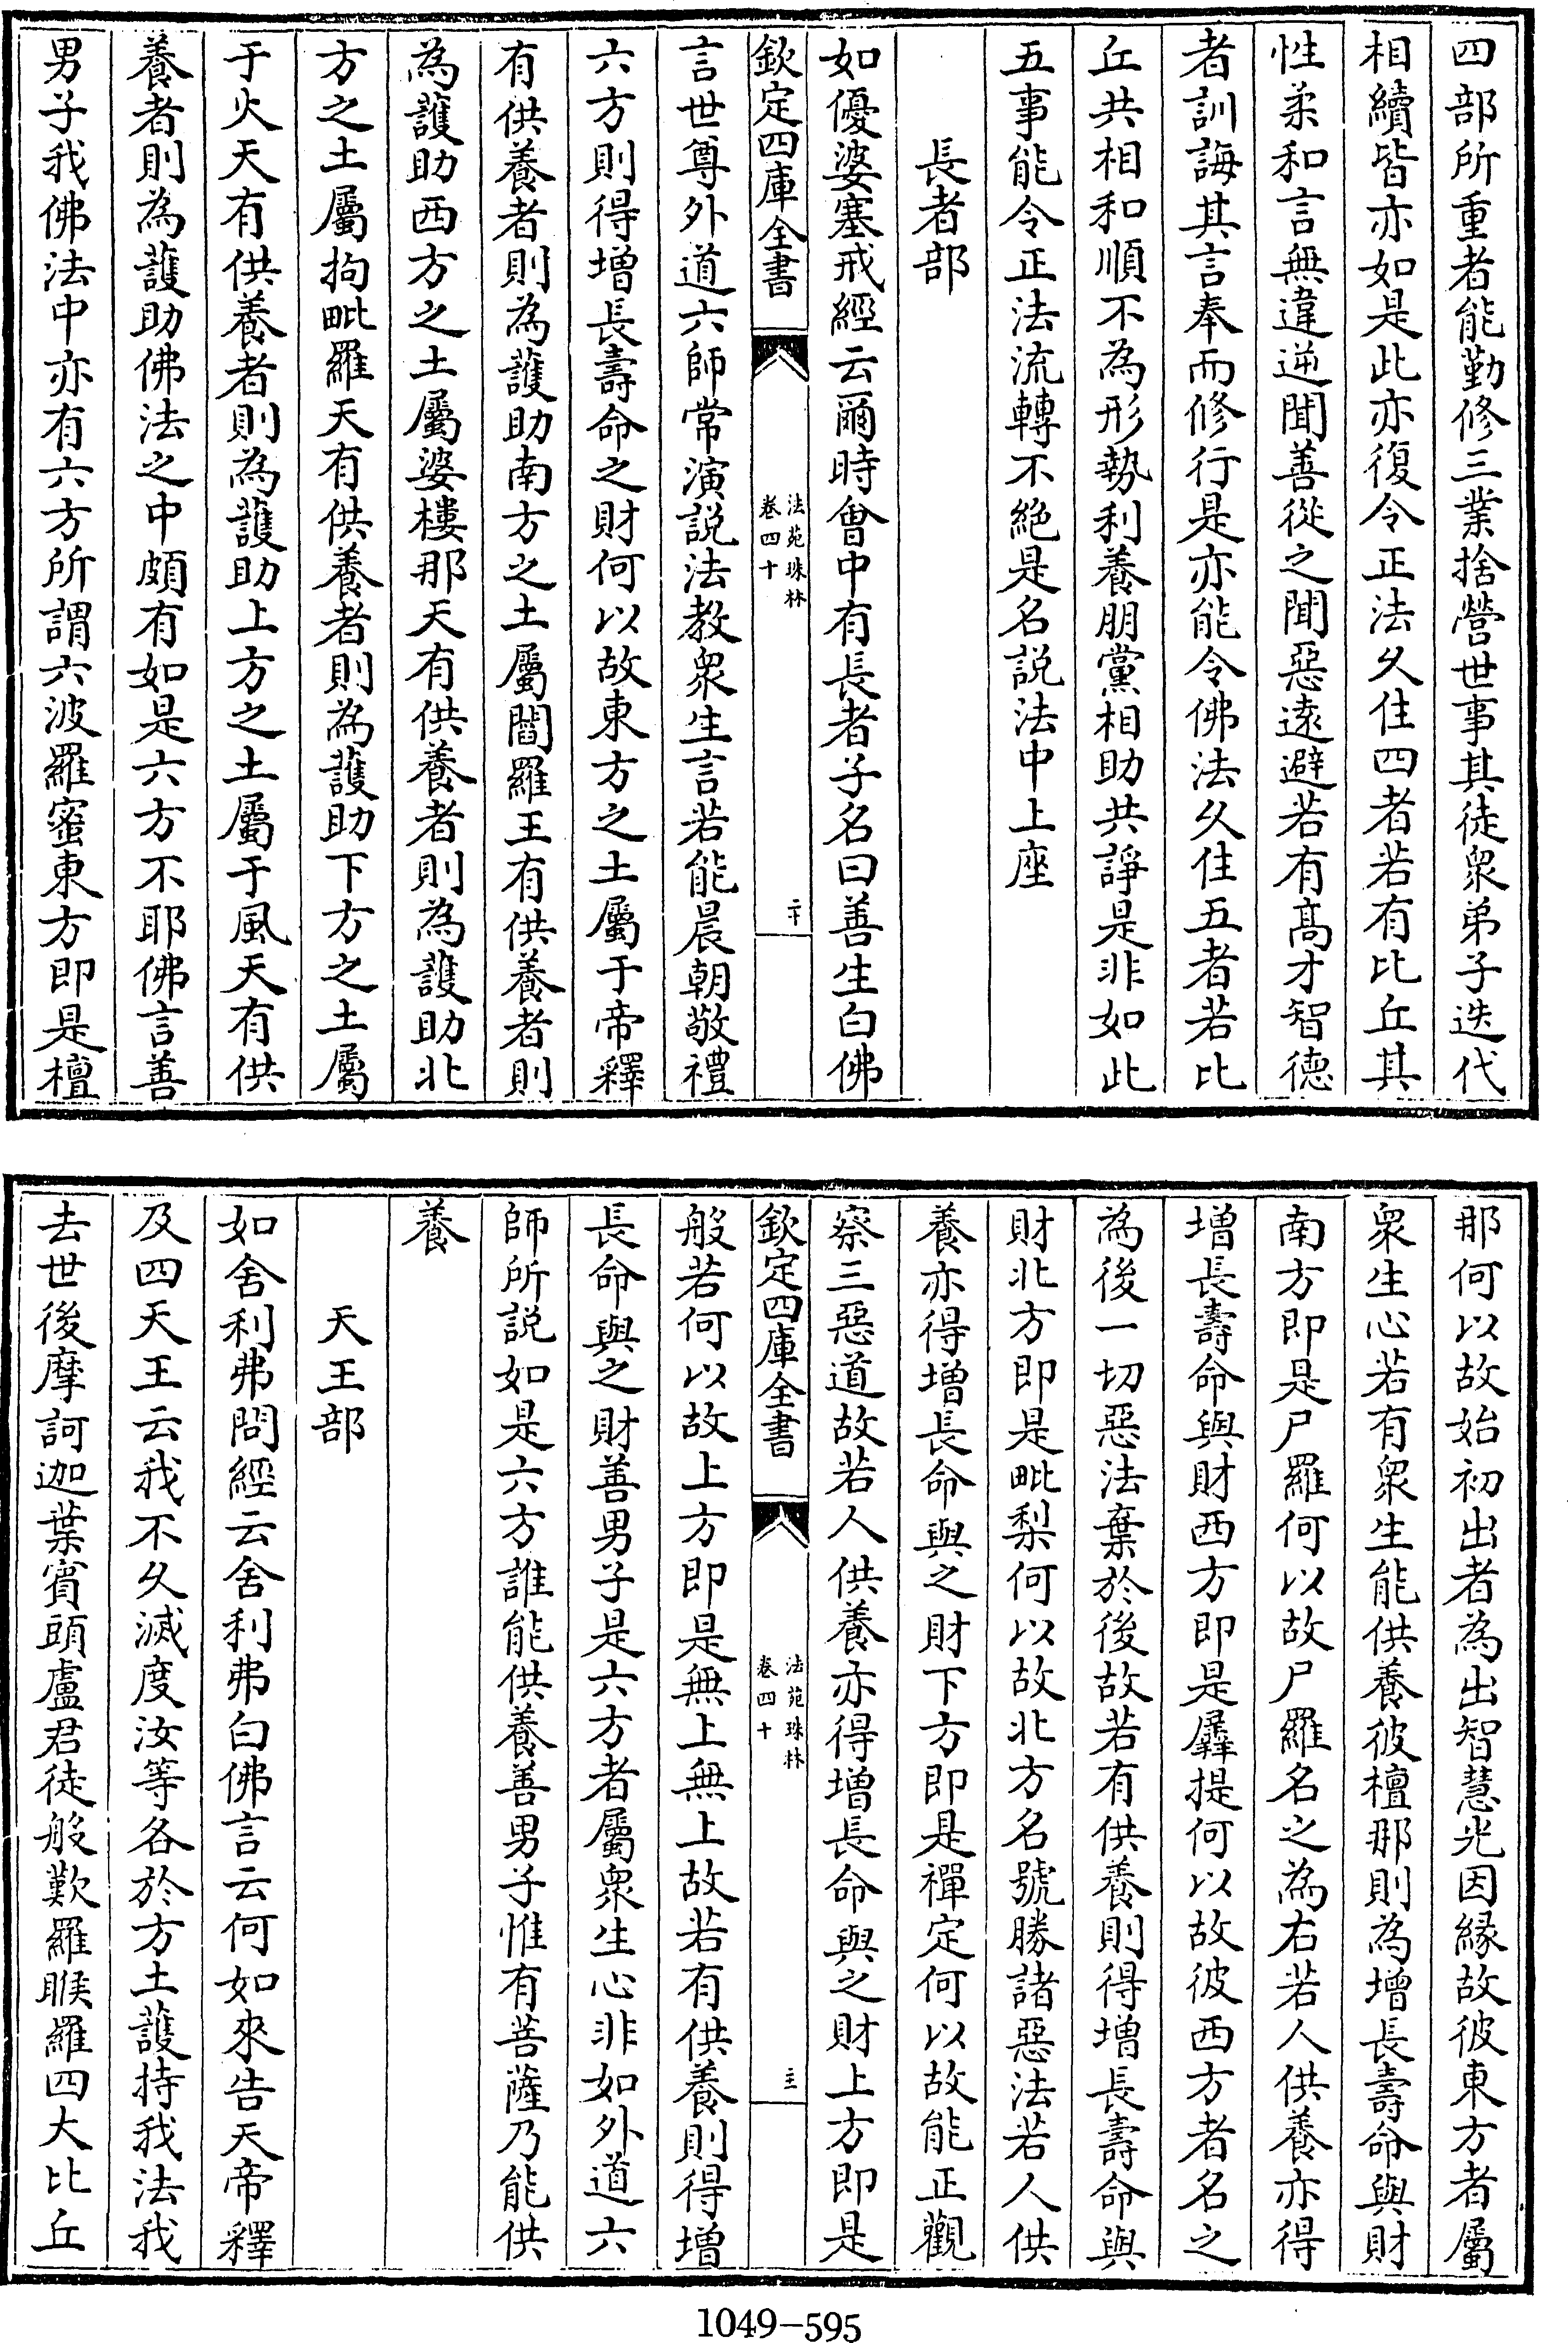 四部所重者能勤修三業捨營世事其徒衆弟子迭代
相續皆亦如是此亦復令正法久住四者若有比丘其
性柔和言無違逆聞善從之聞惡遠避若有高才智德
者訓誨其言奉而修行是亦能令佛法久住五者若比
丘共相和順不為形勢利養朋黨相助共諍是非如此
五事能令正法流轉不絶是名説法中上座
長者部
如優婆塞戒經云爾時會中有長者子名曰善生白佛
欽定四庫全書
法苑珠林
卷四十
二十
言世尊外道六師常演説法教衆生言若能晨朝敬禮
六方則得增長壽命之財何以故東方之土屬于帝釋
有供養者則為護助南方之土屬閻羅王有供養者則
為護助西方之土屬婆樓那天有供養者則為護助北
方之土屬拘毗羅天有供養者則為護助下方之土屬
于火天有供養者則為護助上方之土屬于風天有供
養者則為護助佛法之中頗有如是六方不耶佛言善
男子我佛法中亦有六方所謂六波羅蜜東方即是檀
那何以故始初出者為出智慧光因緣故彼東方者屬
衆生心若有衆生能供養彼檀那則為增長壽命與財
南方即是尸羅何以故尸羅名之為右若人供養亦得
增長壽命與財西方即是羼提何以故彼西方者名之
為後一切惡法棄於後故若有供養則得增長壽命與
財北方即是毗梨何以故北方名號勝諸惡法若人供
養亦得增長命與之財下方即是禪定何以故能正觀
察三惡道故若人供養亦得增長命與之財上方即是
欽定四庫全書
法苑珠林
卷四十
主
般若何以故上方即是無上無上故若有供養則得增
長命與之財善男子是六方者屬衆生心非如外道六
師所説如是六方誰能供養善男子惟有菩薩乃能供
養
天王部
如舍利弗問經云舍利弗白佛言云何如來告天帝釋
及四天王云我不久滅度汝等各於方土護持我法我
去世後摩訶迦葉賓頭盧君徒般歎羅睺羅四大比丘
1049-595